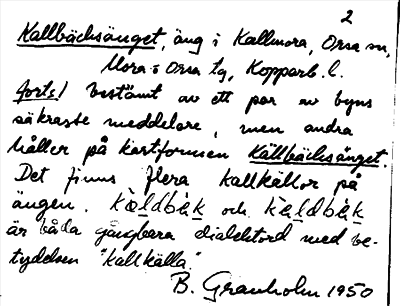 2
Kallbäcksänget, äng i Kallmora, Orsa sn,
Mora o Orsa tg, Kopparb. l.
forts/ bestämt av ett par av byns
säkraste meddelare, men andra
håller på kartformen Källbäcksänget.
Det finns flera kallkällor på
ängen. kàldbä̀k och kä̀ldbä̀k
är båda gångbara dialektord med be-
tydelsen "kallkälla".
B. Granholm 1950